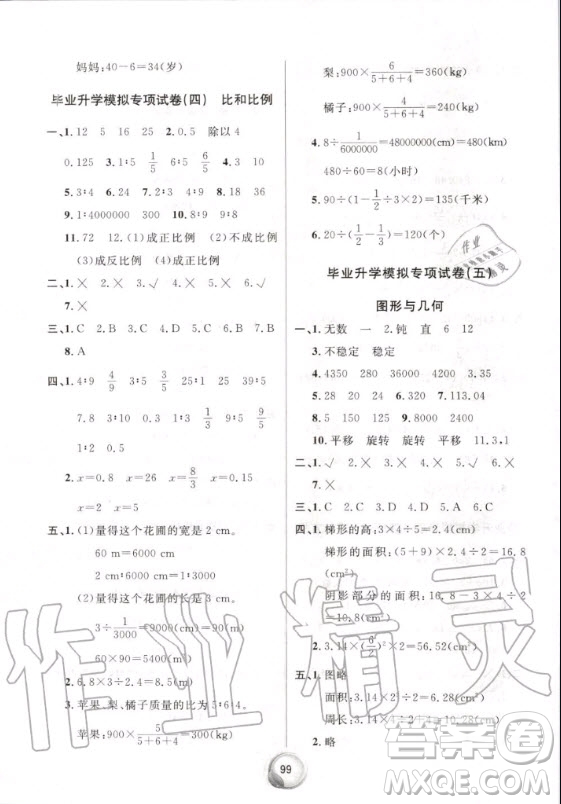 妈妈:40-6=34(岁)
毕业升学模拟专项试卷(四) 比和比例
一、1. 12 5 16 25 2. 0.5 除以4
0.125 3. 1∶5 1/5 6∶5 6/5 4. 3∶1
5. 3∶4 6. 24 7. 2∶9 8. 18 36
9. 1∶4000000 10. 8∶9 9∶8
11. 72 12. (1)成正比例 (2)不成比例
(3)成反比例 (4)成正比例
二、1. × 2. × 3. × 4. × 5. ✓ 6. ×
三、1. C 2. C 3. B 4. D 5. C 6. D 7. C
8. A
四、1. 4∶9 4/9 32∶15 21∶25 39∶5
7.8 1∶3 2∶1 1/3 9∶5 9/5
1∶7 2∶1
2. x=0.8 x=26 x=8/3 x=0.15
x=4.8
五、1. (1)量得这个花圃的宽是2 cm。
60 m=6000 cm
2 cm∶6000 cm=1∶3000
(2)量得这个花圃的长是3 cm。
3÷1/3000=9000(cm)=90(m)
60×90=5400(m²)
2. 6×3.2÷2.4=8(m)
3. 苹果、梨、橘子质量的比为5∶6∶4。
苹果:900×5/(5+6+4)=300(kg)
梨:900×6/(5+6+4)=360(kg)
橘子:900×4/(5+6+4)=240(kg)
4. 8÷1/6000000=48000000(cm)=480(km)
480÷60=8(小时)
5. 90÷(1-1/2÷3×2)=135(千米)
6. 20÷(1/2-1/3)=120(个)
毕业升学模拟专项试卷(五)
图形与几何
一、1. 无数 一 2. 钝 直 6 12
3. 不稳定 稳定
4. 4350 280 4350000 4350
5. 28 20 24 6. 2 7. 113.04
8. 5 150 9. 8000 2400
10. 平移 旋转 旋转 平移 11. 3,1
二、1. ✓ 2. × 3. × 4. ✓ 5. × 6. ✓
7. ×
三、1. C 2. C 3. D 4. D 5. A 6. C
四、1. 梯形的高:3×4÷5=2.4(cm)
梯形的面积:(5+9)×2.4÷2=16.8
(cm²)
阴影部分的面积:16.8-3×4÷2
=10.8(cm²)
2. 3.14×(6/2)²×2=56.52(cm²)
五、1. 图略
面积:3.14×(2÷2)²
周长:3.14×2
2. 略
99
作业精灵
答案圈
MXQE.COM